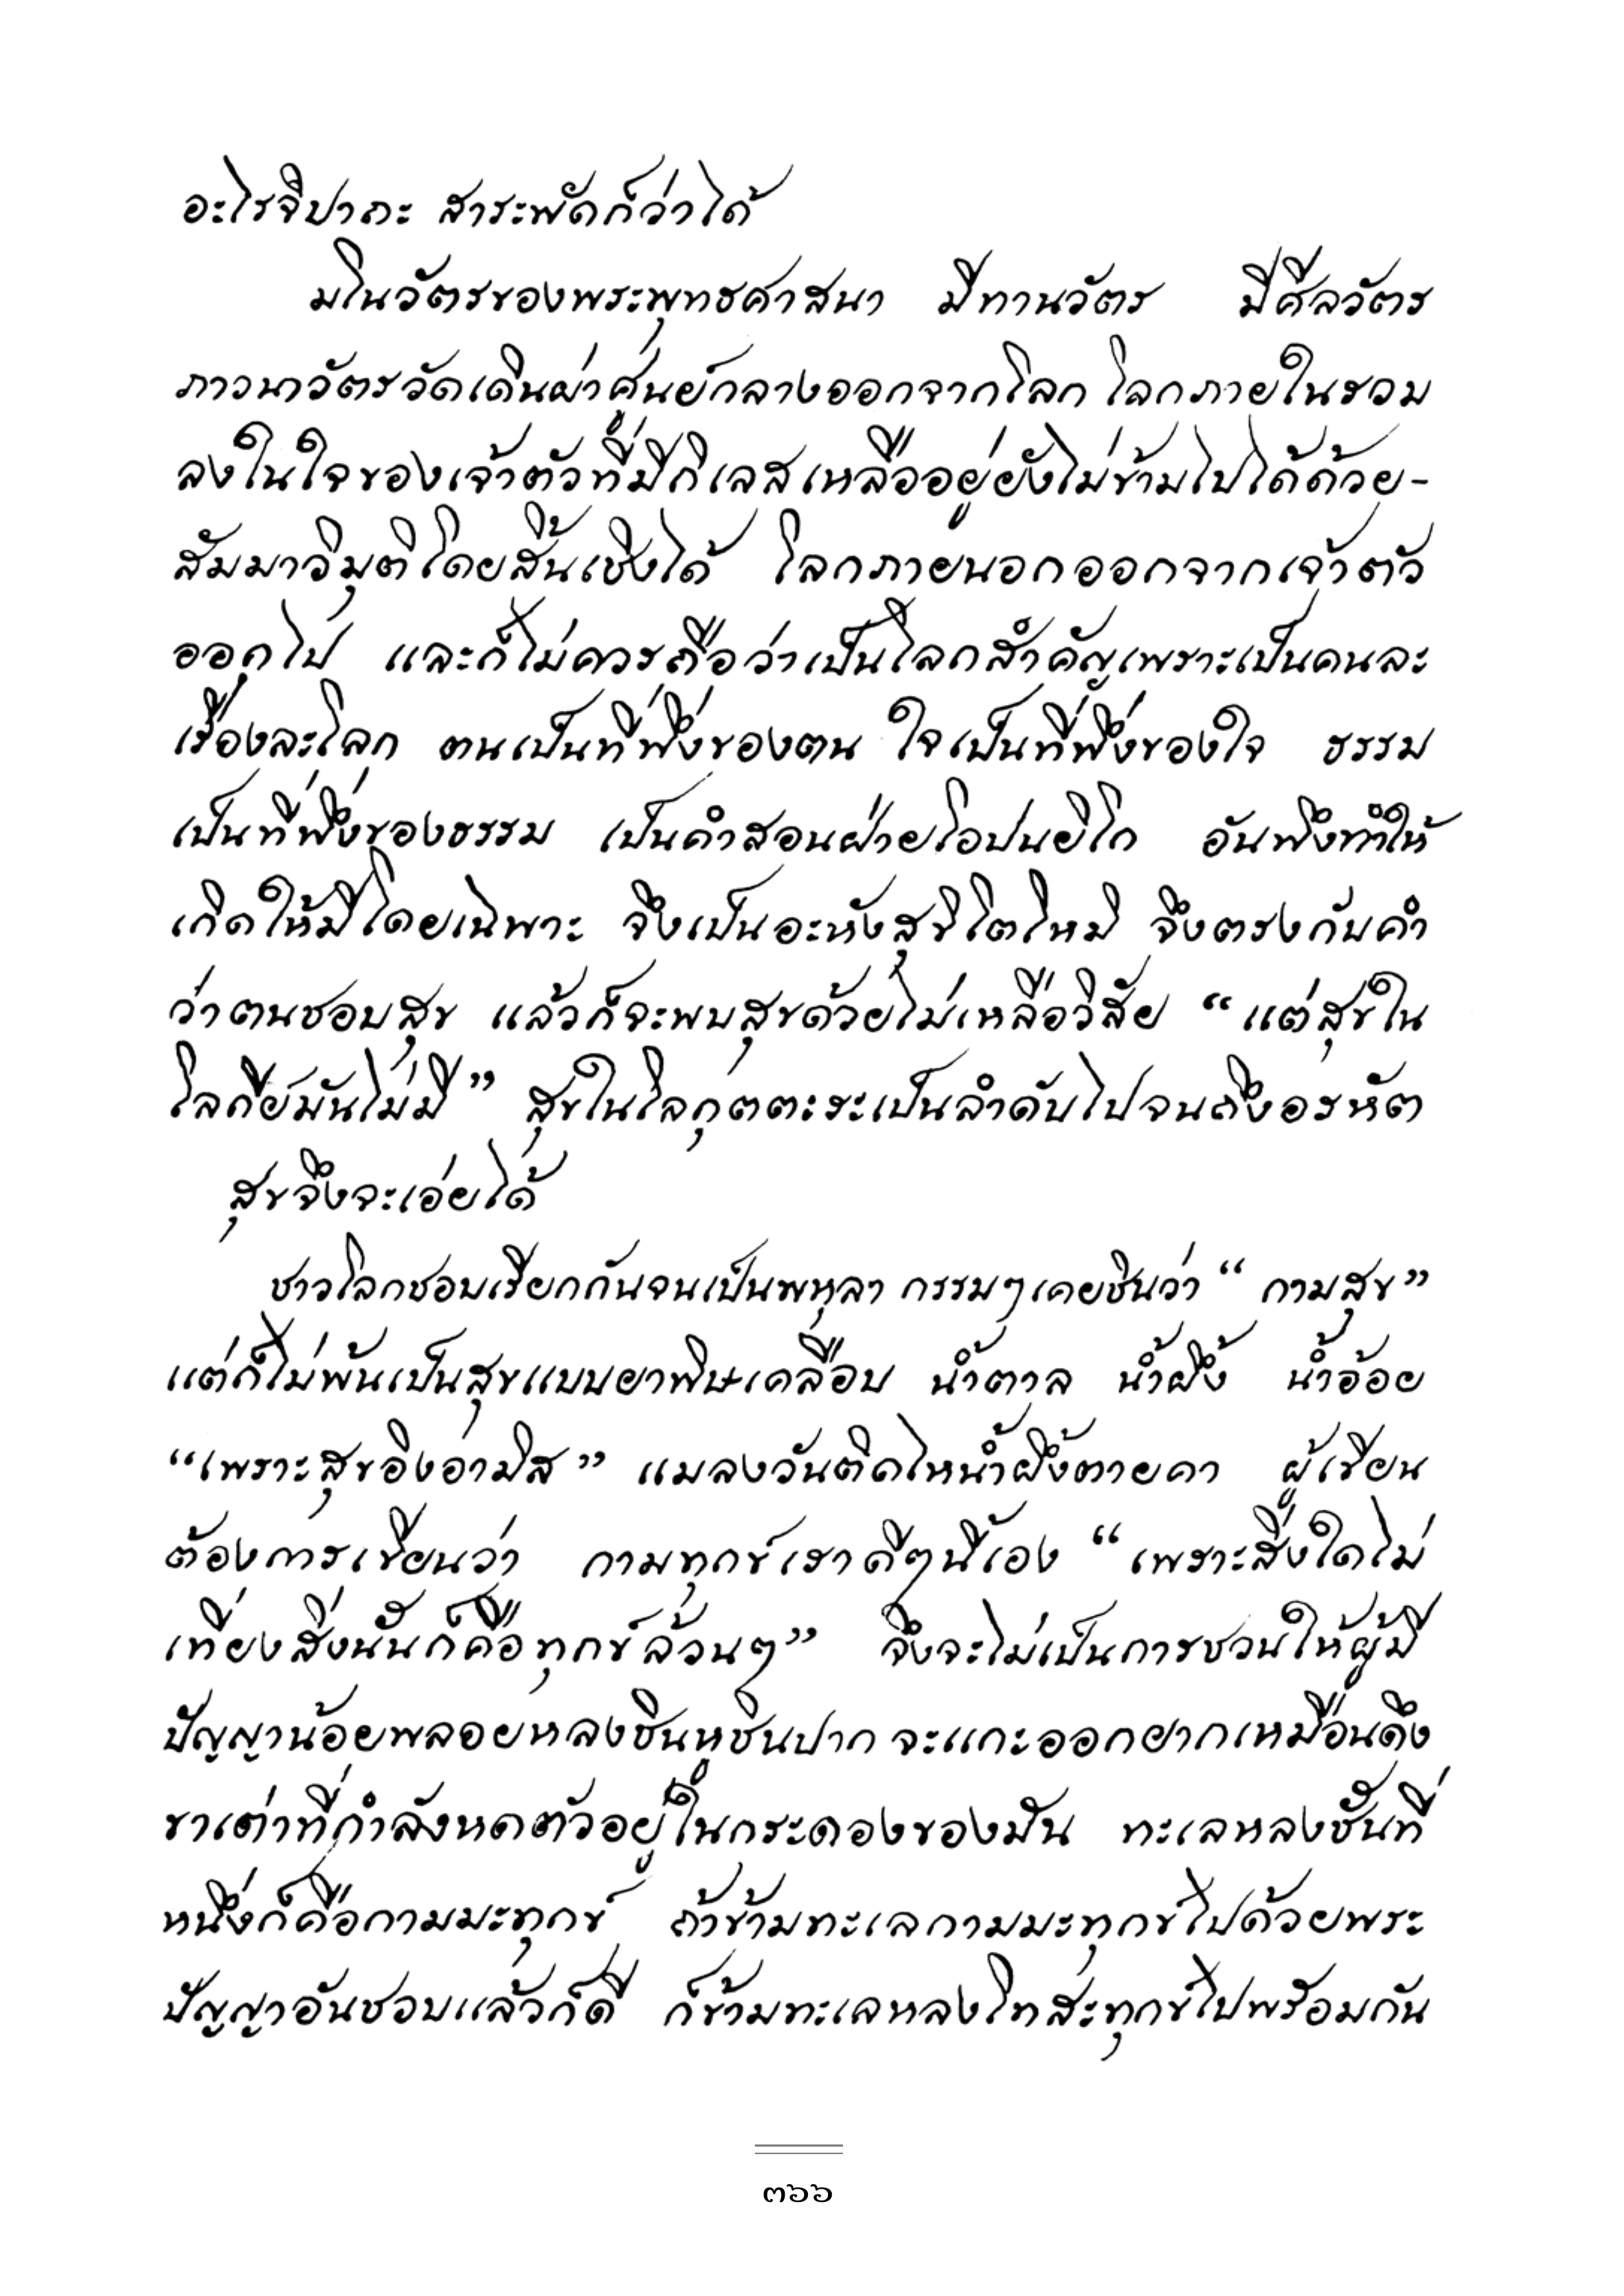 อะไรจิปาถะ สาระพัดก็ว่าได้
มโนวัตรของพระพุทธศาสนา มีทานวัตร มีศีลวัตร
ภาวนาวัตรวัดเดินผ่าศูนย์กลางออกจากโลก โลกภายในรวม
ลงในใจของเจ้าตัวที่มีกิเลสเหลืออยู่ยังไม่ข้ามไปได้ด้วย-
สัมมาวิมุติโดยสิ้นเชิงได้ โลกภายนอกออกจากเจ้าตัว
ออกไป และก็ไม่ควรถือว่าเป็นโลกสำคัญเพราะเป็นคนละ
เรื่องละโลก ตนเป็นที่พึ่งของตน ใจเป็นที่พึ่งของใจ ธรรม
เป็นที่พึ่งของธรรม เป็นคำสอนฝ่ายโอปนยิโก อันพึงทำให้
เกิดให้มีโดยเฉพาะ จึงเป็นอะหังสุขิโตโหมิ จึงตรงกับคำ
ว่าตนชอบสุข แล้วก็จะพบสุขด้วยไม่เหลือวิสัย “แต่สุขใน
โลกีย์มันไม่มี” สุขในโลกุตตะระเป็นลำดับไปจนถึงอรหัต
สุขจึงจะเอ่ยได้
ชาวโลกชอบเรียกกันจนเป็นพหุลา กรรมๆเคยชินว่า “กามสุข”
แต่ก็ไม่พ้นเป็นสุขแบบยาพิษเคลือบ น้ำตาล น้ำผึ้ง น้ำอ้อย
“เพราะสุขอิงอามิส” แมลงวันติดไหน้ำผึ้งตายคา ผู้เขียน
ต้องการเขียนว่า กามทุกข์เราดีๆนี้เอง “เพราะสิ่งใดไม่
เที่ยงสิ่งนั้นก็คือทุกข์ล้วนๆ” จึงจะไม่เป็นการชวนให้ผู้มี
ปัญญาน้อยพลอยหลงชินหูชินปาก จะแกะออกยากเหมือนดึง
ขาเต่าที่กำลังหดตัวอยู่ในกระดองของมัน ทะเลหลงชั้นที่
หนึ่งก็คือกามมะทุกข์ ถ้าข้ามทะเลกามมะทุกข์ไปด้วยพระ
ปัญญาอันชอบแล้วก็ดี ก็ข้ามทะเลหลงโทสะทุกข์ไปพร้อมกัน
๓๖๖